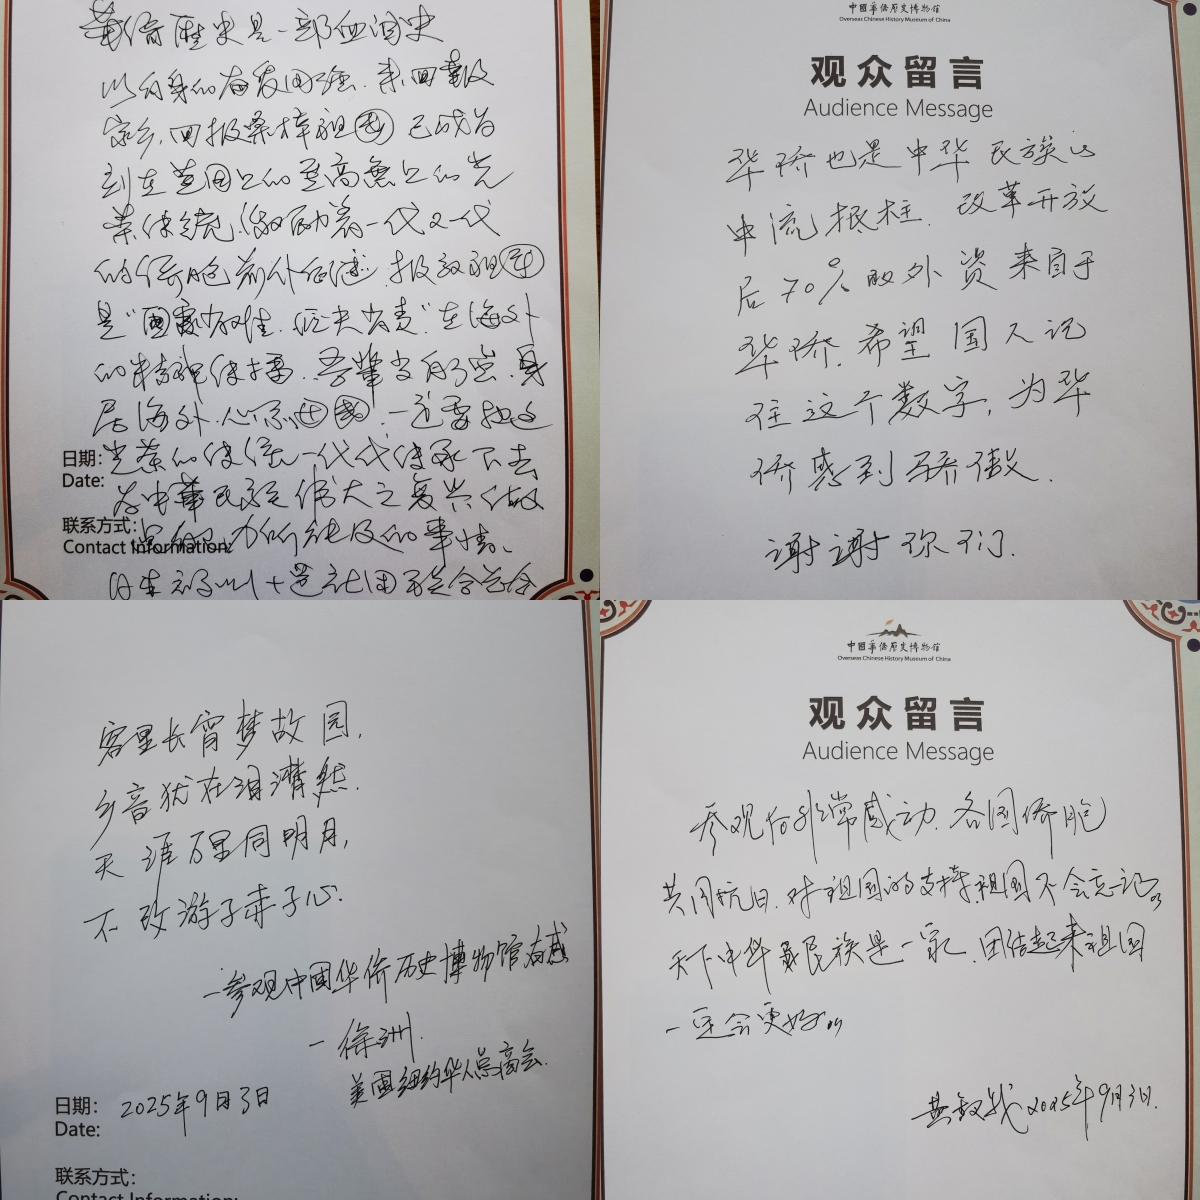 華侨歷史是一部血泪史
以自身的奋发图强.来回報及
家乡.回报桑梓祖国已成为
到在益国上的至高無上的光
荣传统.激励着一代又一代
的侨胞前仆后继.报效祖国
是"国家有难.匹夫有责"在海外
的精神传播.吾輩当自强.身
居海外.心系祖國.一定要把这
光荣的传统一代代传承下去
为中華民族伟大之复兴做
力所能及的事情、
日期:
Date:
联系方式:
Contact Information:
中國華僑歷史博物館
Overseas Chinese History Museum of China
观众留言
Audience Message
华侨也是中华民族的
中流抵柱.改革开放
后70%的外资来自于
华侨.希望国人记
住这个数字,为华
侨感到骄傲.
谢谢你们.
客里长宵梦故园,
乡音犹在泪潸然.
天涯万里同明月,
不改游子赤子心.
—参观中國华侨历史博物馆有感
—徐洲.
美國纽约华人总商会.
日期: 2025年9月3日
Date:
联系方式:
Contact Information:
中國華僑歷史博物館
Overseas Chinese History Museum of China
观众留言
Audience Message
参观后非常感动.各国侨胞
共同抗日.对祖国的支持.祖国不会忘记。
天下中华民族是一家.团结起来祖国
一定会更好。
2025年9月3日.